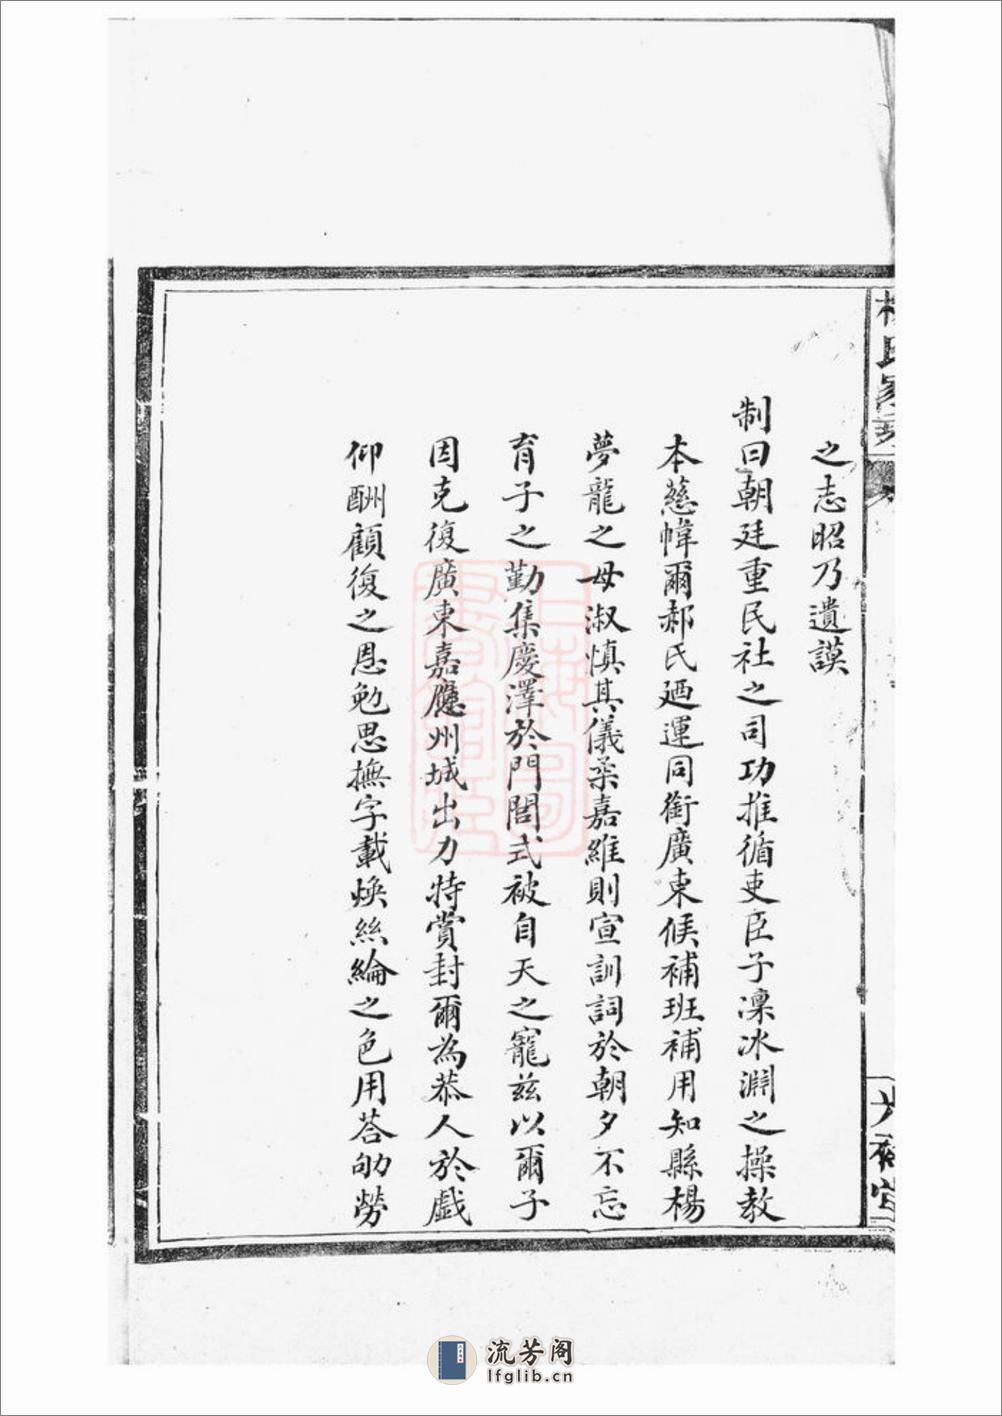 之志昭乃遺謨
制曰朝廷重民社之司功推循吏臣子凜冰淵之操教
本慈幃爾郝氏廼運同銜廣東候補班補用知縣楊
夢龍之母淑慎其儀柔嘉維則宣訓詞於朝夕不忘
育子之勤集慶澤於門閭式被自天之寵兹以爾子
因克復廣東嘉應州城出力特賞封爾為恭人於戲
仰酬顧復之恩勉思撫字載煥絲綸之色用荅劬勞
上海圖
書館藏
流芳阁
lfglib.cn